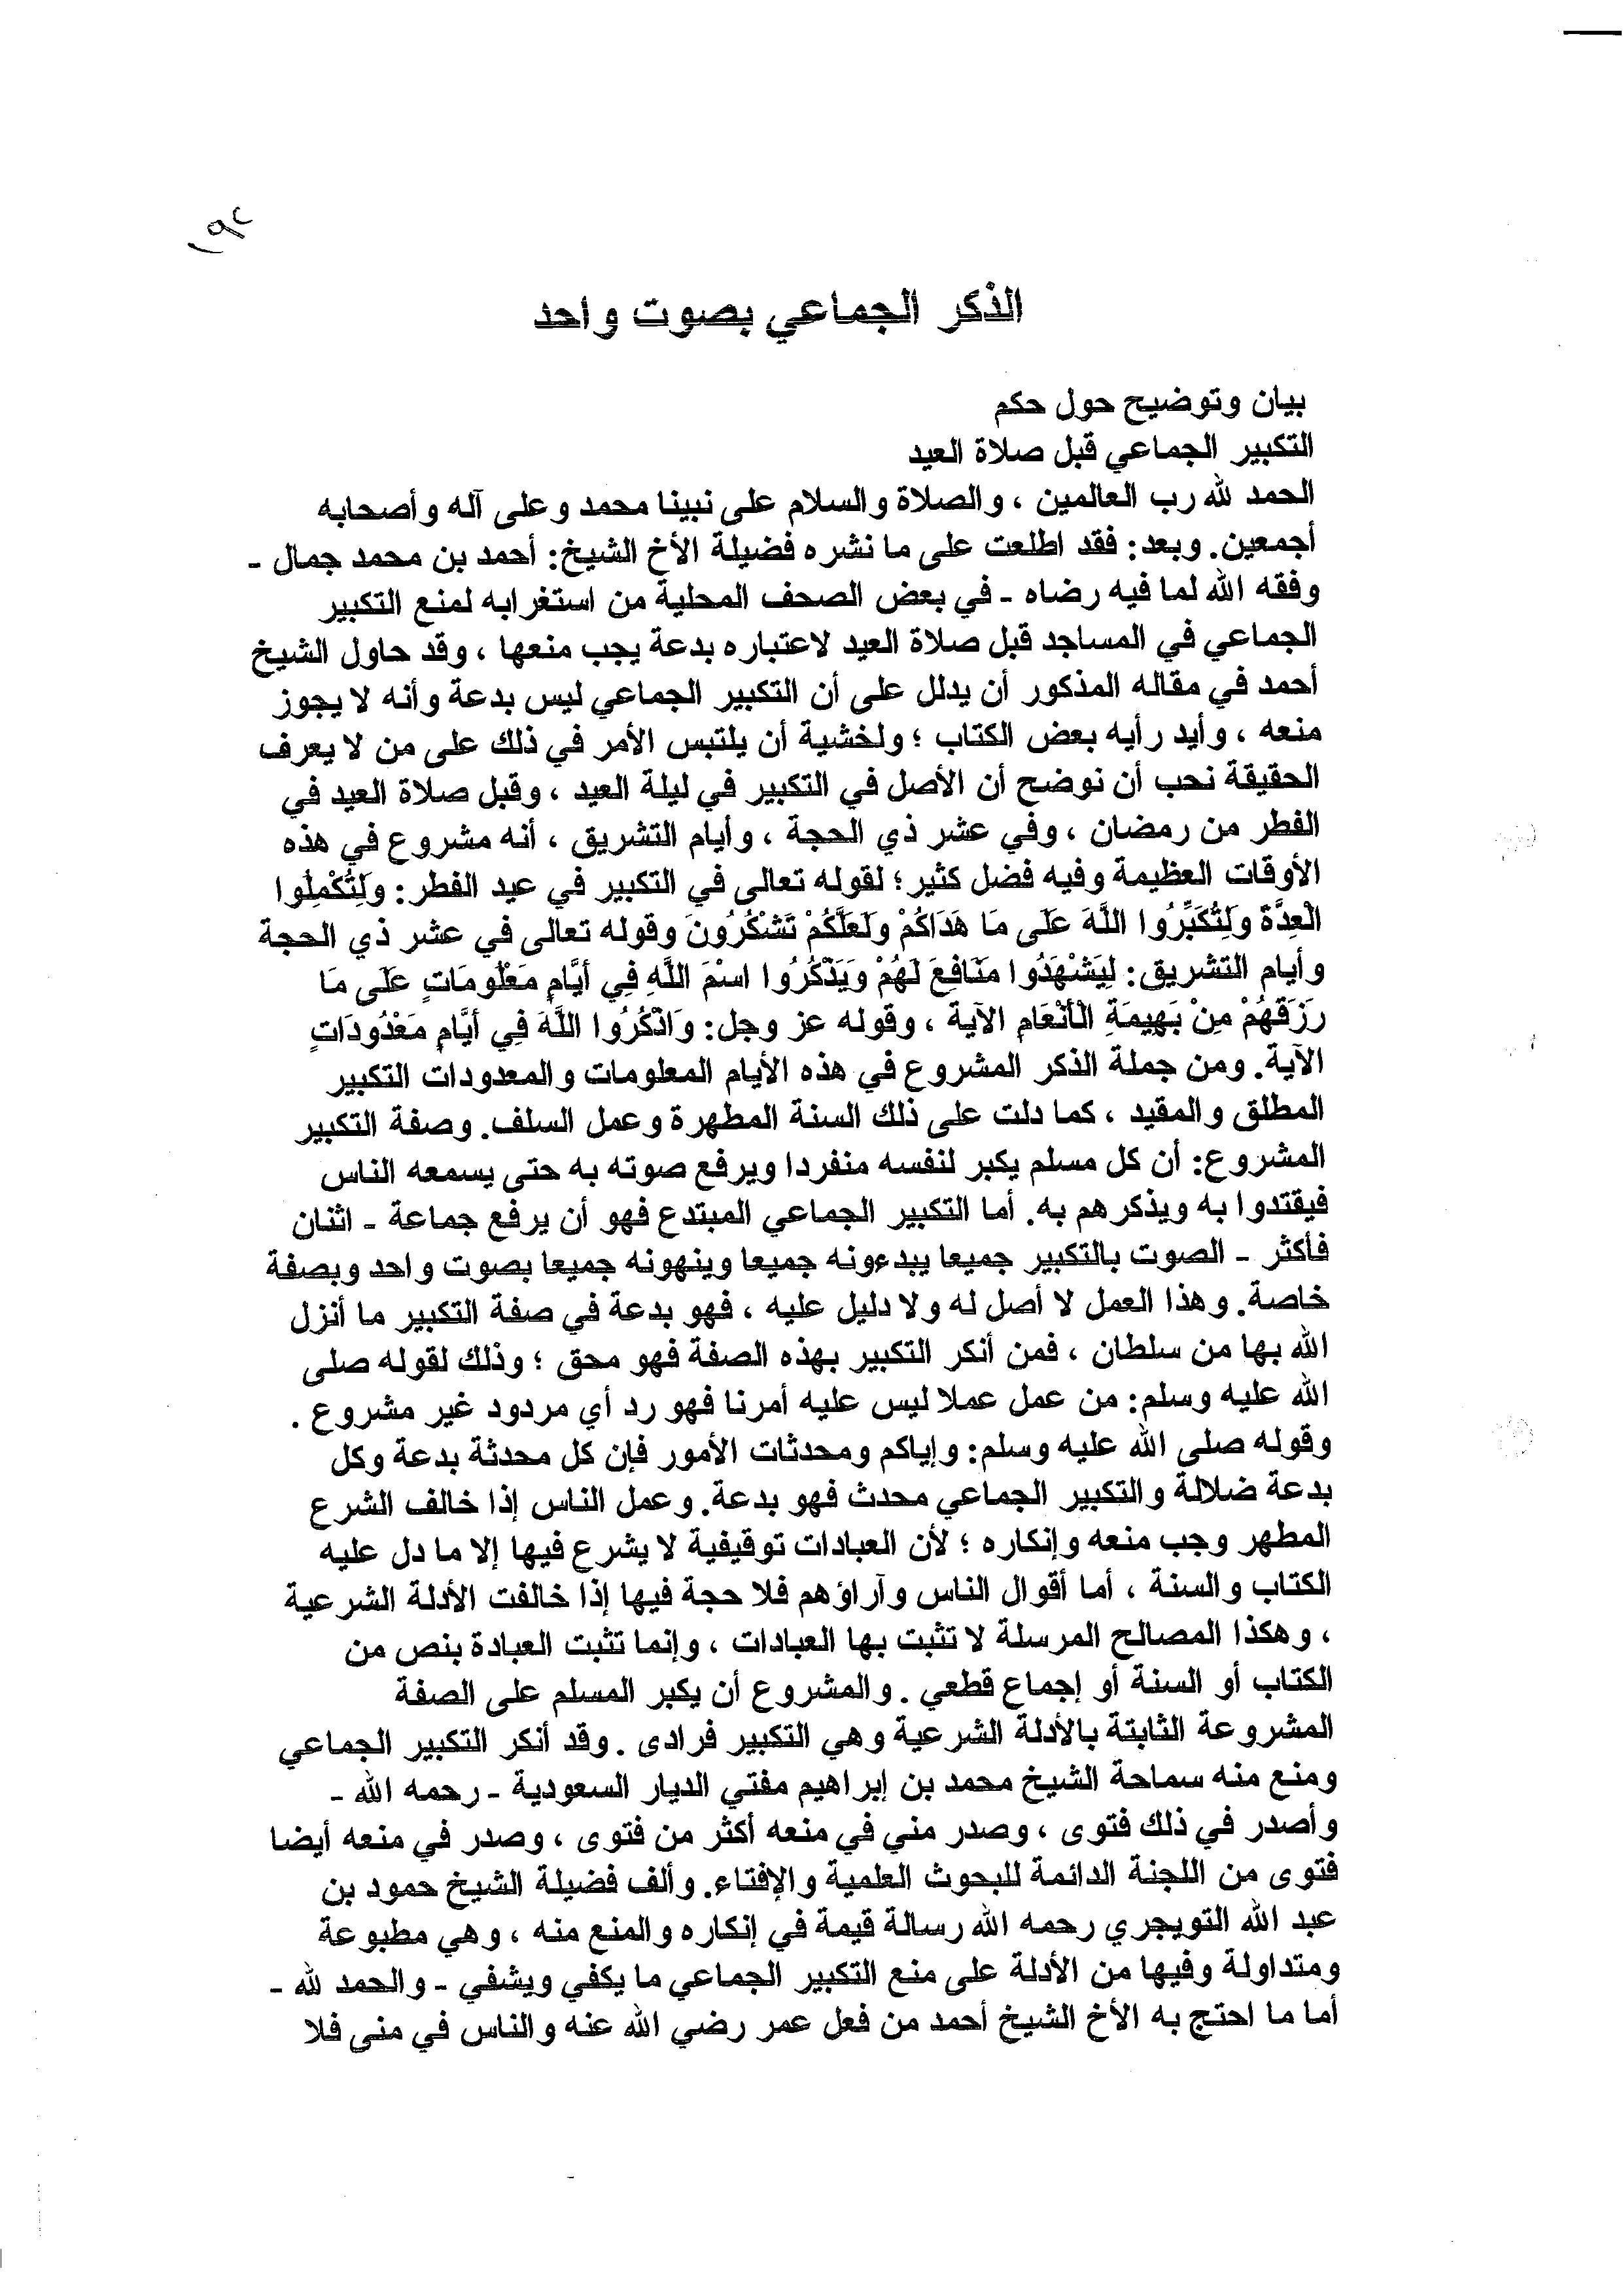 ١٩٢
الذكر الجماعي بصوت واحد
بيان وتوضيح حول حكم
التكبير الجماعي قبل صلاة العيد
الحمد لله رب العالمين ، والصلاة والسلام على نبينا محمد وعلى آله وأصحابه
أجمعين. وبعد: فقد اطلعت على ما نشره فضيلة الأخ الشيخ: أحمد بن محمد جمال -
وفقه الله لما فيه رضاه - في بعض الصحف المحلية من استغرابه لمنع التكبير
الجماعي في المساجد قبل صلاة العيد لاعتباره بدعة يجب منعها ، وقد حاول الشيخ
أحمد في مقاله المذكور أن يدلل على أن التكبير الجماعي ليس بدعة وأنه لا يجوز
منعه ، وأيد رأيه بعض الكتاب ؛ ولخشية أن يلتبس الأمر في ذلك على من لا يعرف
الحقيقة نحب أن نوضح أن الأصل في التكبير في ليلة العيد ، وقبل صلاة العيد في
الفطر من رمضان ، وفي عشر ذي الحجة ، وأيام التشريق ، أنه مشروع في هذه
الأوقات العظيمة وفيه فضل كثير ؛ لقوله تعالى في التكبير في عيد الفطر: وَلِتُكْمِلُوا
الْعِدَّةَ وَلِتُكَبِّرُوا اللَّهَ عَلَى مَا هَدَاكُمْ وَلَعَلَّكُمْ تَشْكُرُونَ وقوله تعالى في عشر ذي الحجة
وأيام التشريق: لِيَشْهَدُوا مَنَافِعَ لَهُمْ وَيَذْكُرُوا اسْمَ اللَّهِ فِي أَيَّامٍ مَعْلُومَاتٍ عَلَى مَا
رَزَقَهُمْ مِنْ بَهِيمَةِ الْأَنْعَامِ الآية ، وقوله عز وجل: وَاذْكُرُوا اللَّهَ فِي أَيَّامٍ مَعْدُودَاتٍ
الآية. ومن جملة الذكر المشروع في هذه الأيام المعلومات والمعدودات التكبير
المطلق والمقيد ، كما دلت على ذلك السنة المطهرة وعمل السلف. وصفة التكبير
المشروع: أن كل مسلم يكبر لنفسه منفردا ويرفع صوته به حتى يسمعه الناس
فيقتدوا به ويذكرهم به. أما التكبير الجماعي المبتدع فهو أن يرفع جماعة - اثنان
فأكثر - الصوت بالتكبير جميعا يبدءونه جميعا وينهونه جميعا بصوت واحد وبصفة
خاصة. وهذا العمل لا أصل له ولا دليل عليه ، فهو بدعة في صفة التكبير ما أنزل
الله بها من سلطان ، فمن أنكر التكبير بهذه الصفة فهو محق ؛ وذلك لقوله صلى
الله عليه وسلم: من عمل عملا ليس عليه أمرنا فهو رد أي مردود غير مشروع .
وقوله صلى الله عليه وسلم: وإياكم ومحدثات الأمور فإن كل محدثة بدعة وكل
بدعة ضلالة والتكبير الجماعي محدث فهو بدعة. وعمل الناس إذا خالف الشرع
المطهر وجب منعه وإنكاره ؛ لأن العبادات توقيفية لا يشرع فيها إلا ما دل عليه
الكتاب والسنة ، أما أقوال الناس وآراؤهم فلا حجة فيها إذا خالفت الأدلة الشرعية
، وهكذا المصالح المرسلة لا تثبت بها العبادات ، وإنما تثبت العبادة بنص من
الكتاب أو السنة أو إجماع قطعي . والمشروع أن يكبر المسلم على الصفة
المشروعة الثابتة بالأدلة الشرعية وهي التكبير فرادى . وقد أنكر التكبير الجماعي
ومنع منه سماحة الشيخ محمد بن إبراهيم مفتي الديار السعودية - رحمه الله -
وأصدر في ذلك فتوى ، وصدر مني في منعه أكثر من فتوى ، وصدر في منعه أيضا
فتوى من اللجنة الدائمة للبحوث العلمية والإفتاء. وألف فضيلة الشيخ حمود بن
عبد الله التويجري رحمه الله رسالة قيمة في إنكاره والمنع منه ، وهي مطبوعة
ومتداولة وفيها من الأدلة على منع التكبير الجماعي ما يكفي ويشفي - والحمد لله -
أما ما احتج به الأخ الشيخ أحمد من فعل عمر رضي الله عنه والناس في منى فلا